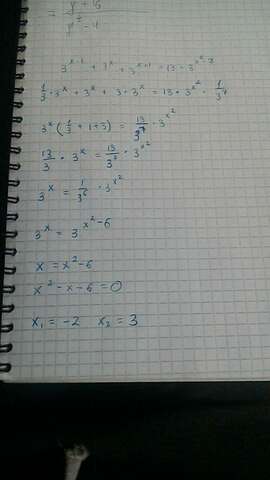 = y + 15 / y² - 4
3^(x-1) + 3^x + 3^(x+1) = 13 · 3^(x²-7)
1/3 · 3^x + 3^x + 3 · 3^x = 13 · 3^(x²) · 1/3^7
3^x (1/3 + 1 + 3) = 13/3^7 · 3^(x²)
13/3 · 3^x = 13/3^7 · 3^(x²)
3^x = 1/3^6 · 3^(x²)
3^x = 3^(x²-6)
x = x² - 6
x² - x - 6 = 0
x₁ = -2 x₂ = 3